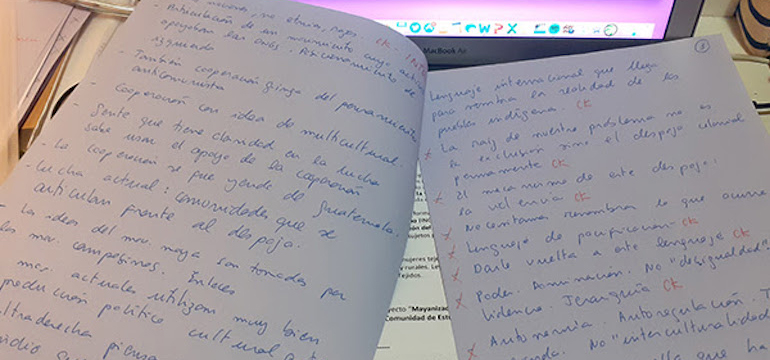 - Articulación de un movimiento
izquierda
- También cooperación gringa del pensamiento
anticomunista
- Cooperación con idea de multicultural.
- Gente que tiene claridad en la lucha
sabe usar el apoyo de la cooperación
- La cooperación se fue yendo de Guatemala.
- Lucha actual: comunidades que se
articulan frente al despojo.
- Las ideas del mov. maya son tomadas por
los mov. campesinos.
mov. actuales utilizan muy bien
producción político cultural
ultraderecha piensa
MacBook Air
W P X
Lenguaje internacional que llega
para nombrar la realidad de los
pueblos indígena ck
x La raíz de nuestro problema no es
la exclusión sino el despojo colonial
permanente ck
x El mecanismo de este despojo:
la violencia ck
x Necesitamos renombrar lo que ocurre
x Lenguaje de pacificación - ck
x Darle vuelta a este lenguaje ck
x Poder. Dominación. No "desigualdad".
Violencia. Jerarquía ck
x Autonomía. Autoregulación.
No "interculturalidad
que ha
mujeres tej
y rurales. Le
Tejidos.
yecto "Mayanizac
Comunidad de Estu